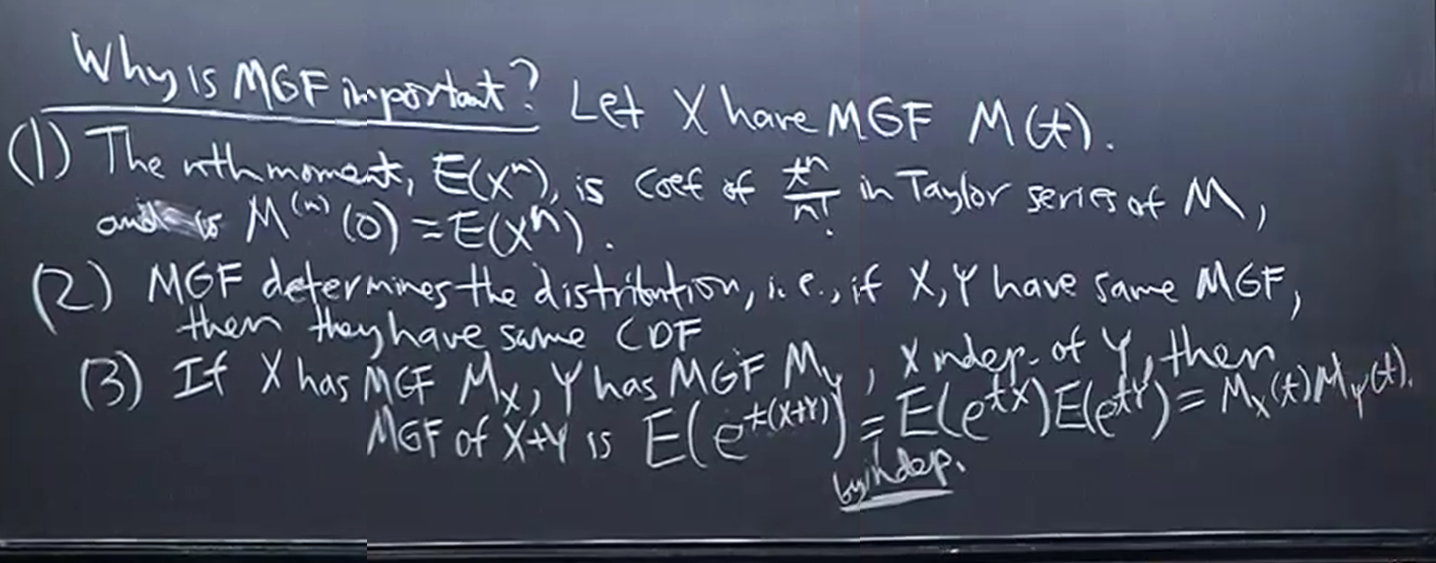 Why is MGF important? Let X have MGF M(t).
(1) The nth moment, E(Xⁿ), is coef of tⁿ/n! in Taylor series of M,
and M⁽ⁿ⁾(0) = E(Xⁿ).
(2) MGF determines the distribution, i.e., if X, Y have same MGF,
then they have same CDF
(3) If X has MGF M_X, Y has MGF M_Y, X indep. of Y, then
MGF of X+Y is E(e^{t(X+Y)}) = E(e^{tX})E(e^{tY}) = M_X(t)M_Y(t).
by indep.